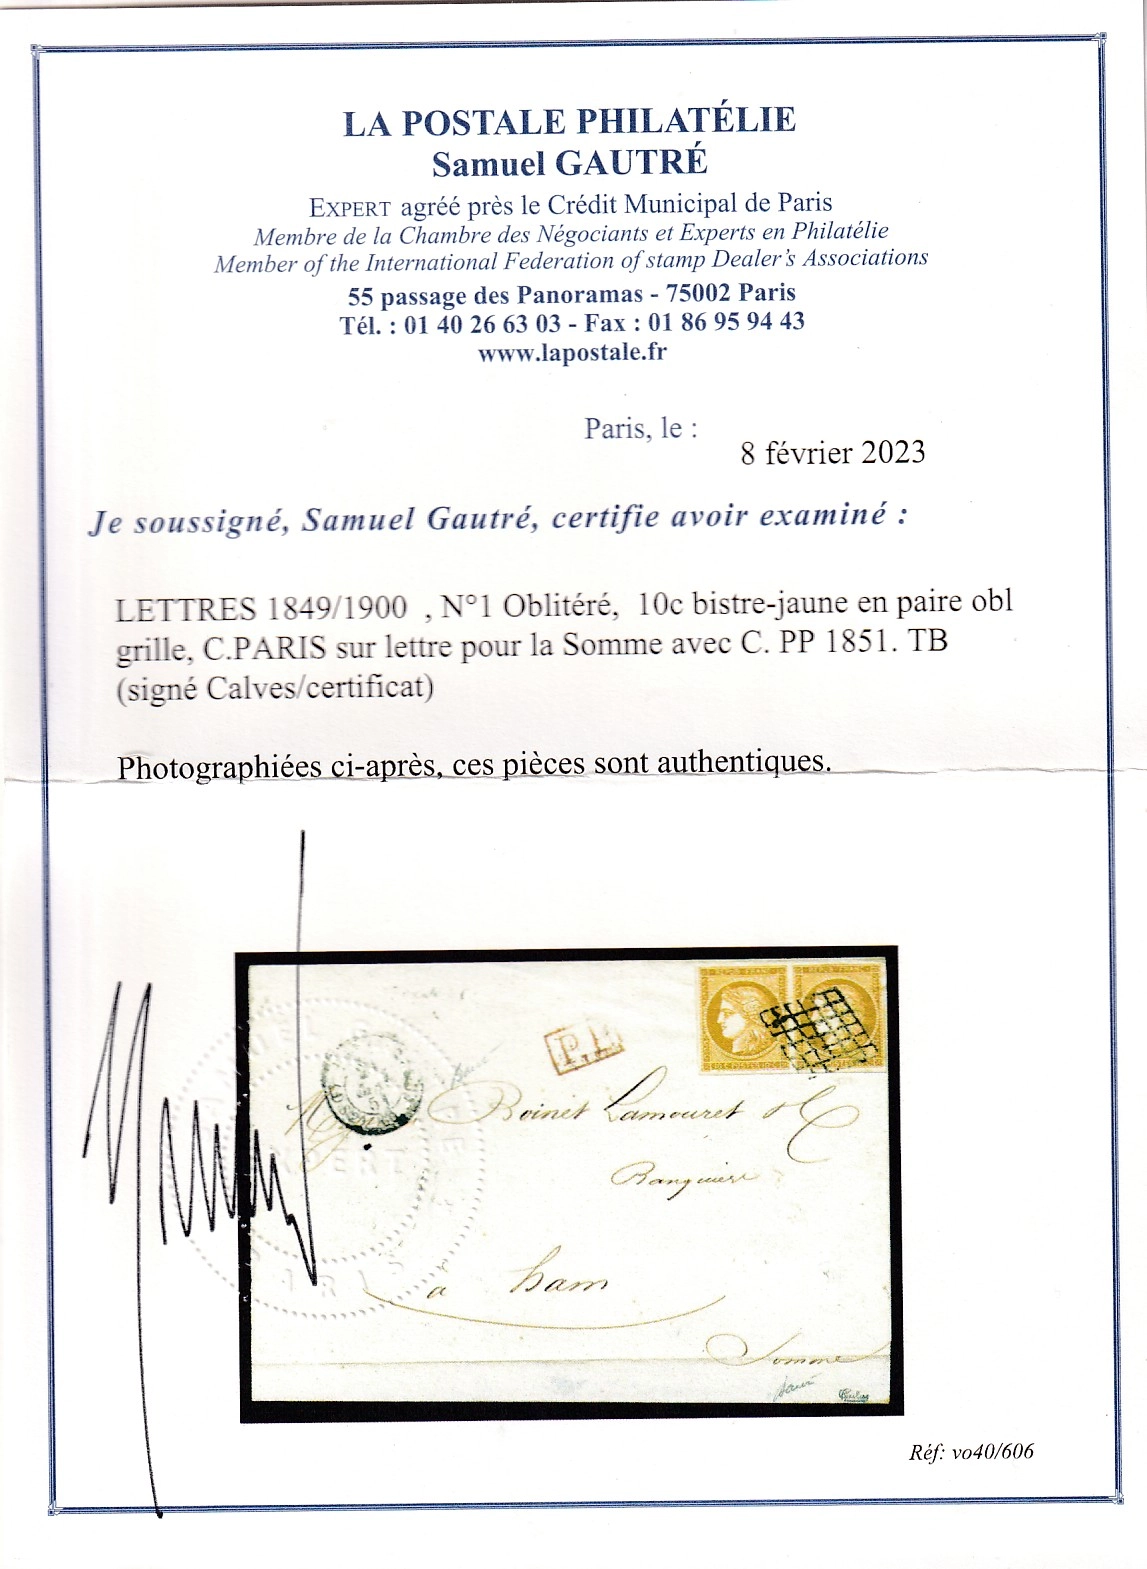 LA POSTALE PHILATÉLIE
Samuel GAUTRÉ
EXPERT agréé près le Crédit Municipal de Paris
Membre de la Chambre des Négociants et Experts en Philatélie
Member of the International Federation of stamp Dealer's Associations
55 passage des Panoramas - 75002 Paris
Tél. : 01 40 26 63 03 - Fax : 01 86 95 94 43
www.lapostale.fr
Paris, le :
8 février 2023
Je soussigné, Samuel Gautré, certifie avoir examiné :
LETTRES 1849/1900 , N°1 Oblitéré, 10c bistre-jaune en paire obl
grille, C.PARIS sur lettre pour la Somme avec C. PP 1851. TB
(signé Calves/certificat)
Photographiées ci-après, ces pièces sont authentiques.
REPUB FRANC
REPUB FRANC
Boinet Lamouret & C
Banquiers
a ham
Somme
Réf: vo40/606